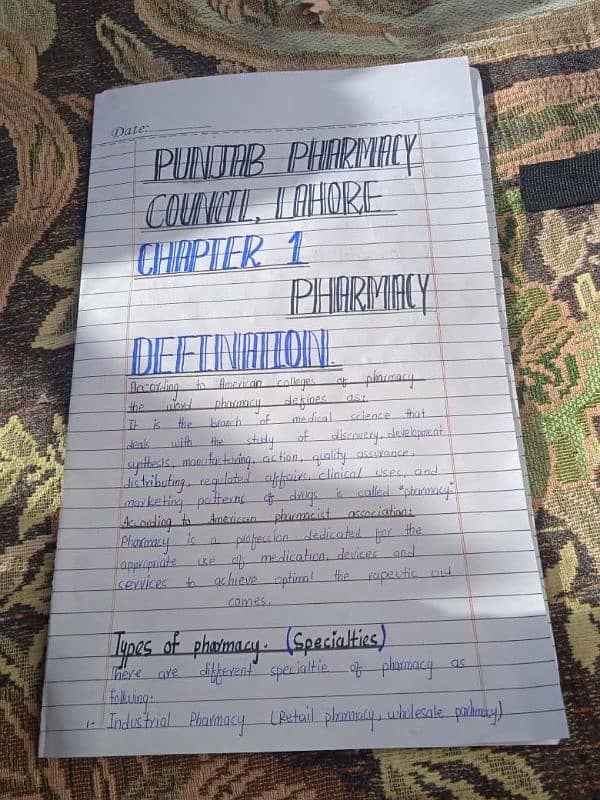 Date:
PUNJAB PHARMACY
COUNCIL, LAHORE
CHAPTER 1
PHARMACY
DEFINATION.
According to American colleges of pharmacy
the word pharmacy defines as:
It is the branch of medical science that
deals with the study of discovery, development
synthesis, manufacturing, action, quality assurance,
distributing, regulated affairs, clinical uses, and
marketing patterns of drugs is called "pharmacy."
According to American pharmacist association:
Pharmacy is a profession dedicated for the
appropriate use of medication, devices and
services to achieve optimal the rapeutic out
comes.
Types of pharmacy. (Specialties)
There are different specialtie of pharmacy as
following:
1. Industrial Pharmacy (Retail pharmacy, wholesale